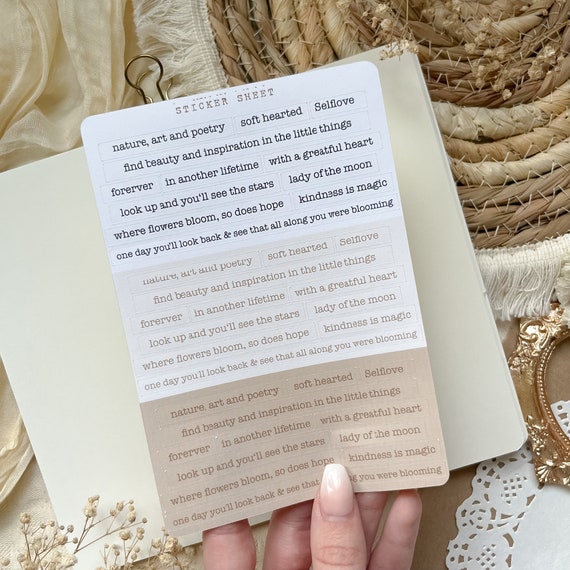 STICKER SHEET
nature, art and poetry soft hearted Selflove
find beauty and inspiration in the little things
forerver in another lifetime with a greatful heart
look up and you'll see the stars lady of the moon
where flowers bloom, so does hope kindness is magic
one day you'll look back & see that all along you were blooming
nature, art and poetry soft hearted Selflove
find beauty and inspiration in the little things
forerver in another lifetime with a greatful heart
look up and you'll see the stars lady of the moon
where flowers bloom, so does hope kindness is magic
one day you'll look back & see that all along you were blooming
nature, art and poetry soft hearted Selflove
find beauty and inspiration in the little things
forerver in another lifetime with a greatful heart
look up and you'll see the stars lady of the moon
where flowers bloom, so does hope kindness is magic
one day you'll look back & see that all along you were blooming